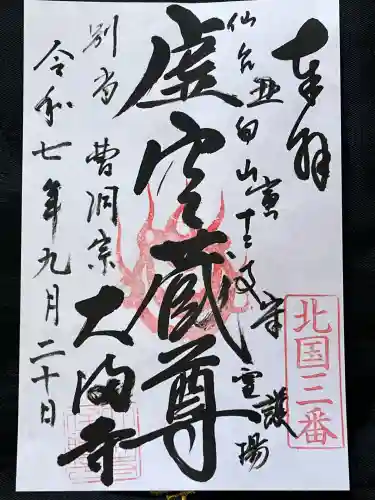 奉拝
北国三番
仙台丑白山寅十二支守霊護場
虚空蔵尊
別当 曹洞宗
大満寺
令和七年九月二十日